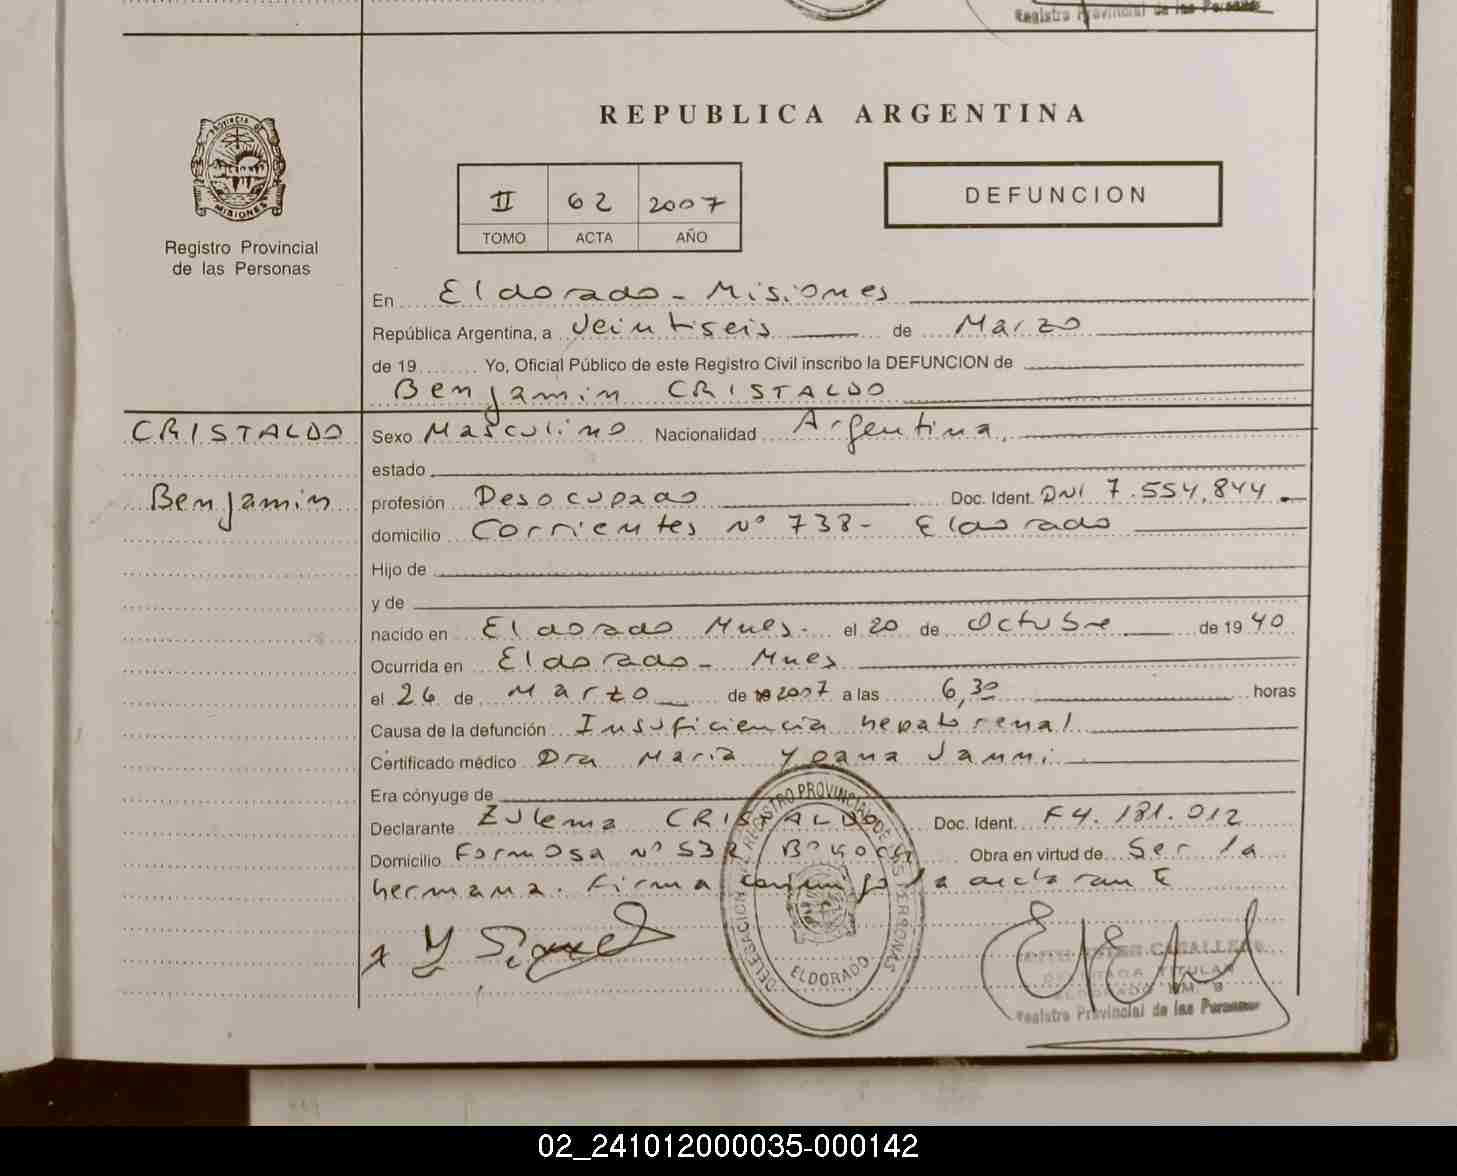 Registro Provincial de las Personas
REPUBLICA ARGENTINA
PROVINCIA DE
MISIONES
Registro Provincial
de las Personas
II 62 2007
TOMO ACTA AÑO
DEFUNCION
En Eldorado - Misiones
República Argentina, a veintiseis de Marzo
de 19........ Yo, Oficial Público de este Registro Civil inscribo la DEFUNCION de
Benjamin CRISTALDO
CRISTALDO
Benjamin
Sexo Masculino Nacionalidad Argentina.
estado
profesión Desocupado Doc. Ident. DNI 7.554.844
domicilio Corrientes Nº 738 - Eldorado
Hijo de
y de
nacido en Eldorado Mnes. el 20 de Octubre de 19 40
Ocurrida en Eldorado - Mnes
el 26 de Marzo de 2007 a las 6,30 horas
Causa de la defunción Insuficiencia hepatorenal
Certificado médico Dra Maria Yoana Janni
Era cónyuge de
Declarante Zulema CRISTALDO Doc. Ident. F4.181.012
Domicilio Formosa nº 532 Bº Obra en virtud de Ser la
hermana. Firma la declarante
x
DELEGACION REGISTRO PROVINCIAL DE LAS PERSONAS
ELDORADO
CABALLERO
TITULAR
Registro Provincial de las Personas
02_241012000035-000142